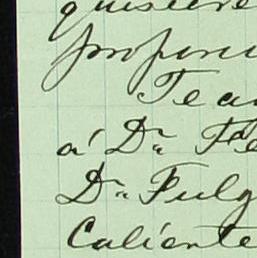 quisiere
propon
Tea
á Dn Fe
Dn Fulg
Caliente